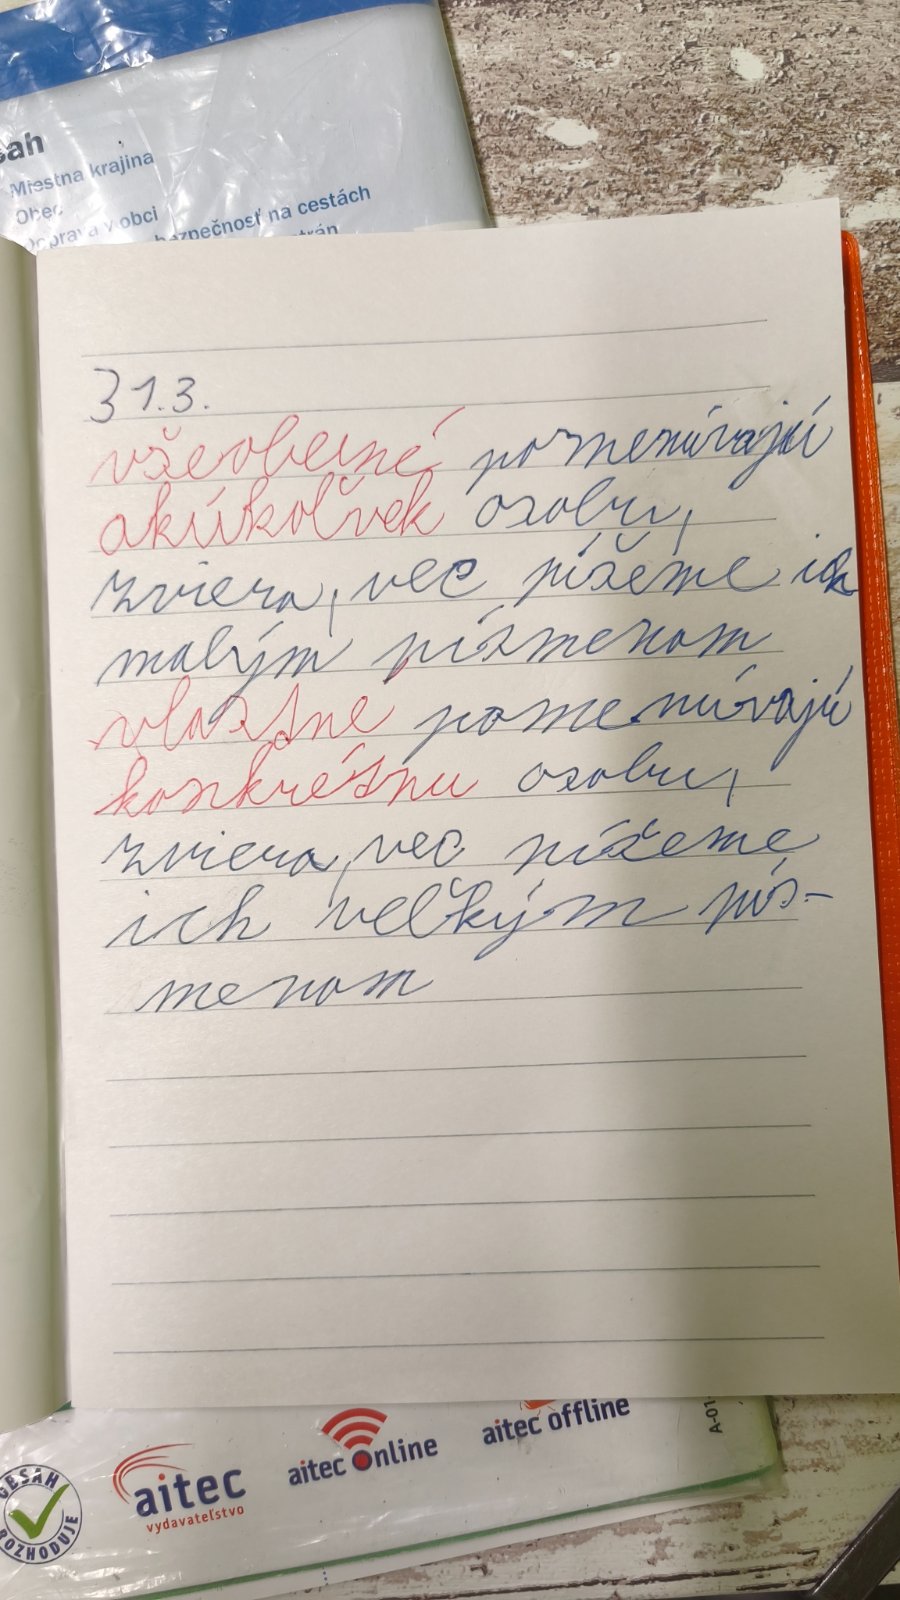 sah
Miestna krajina
Obec
Doprava v obci
bezpečnosť na cestách
strán
31.3.
všeobecné pomenúvajú
akúkoľvek osobu,
zviera, vec píšeme ich
malým písmenom
vlastne pomenúvajú
konkrétnu osobu,
zviera, vec píšeme
ich veľkým pís-
menom
OBSAH
ROZHODUJE
aitec
vydavateľstvo
aitec online
aitec offline
A-01